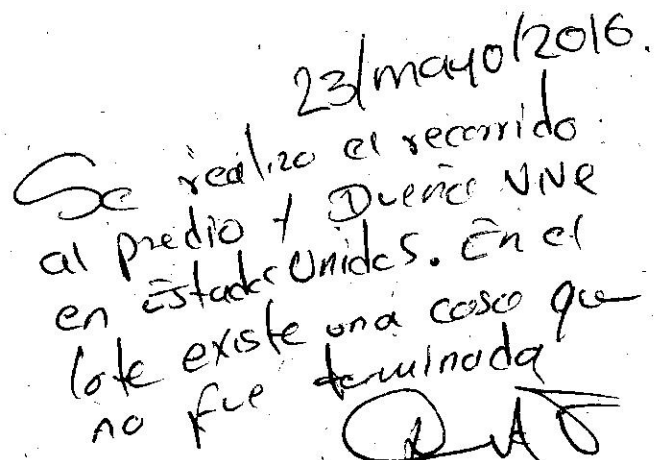 23/mayo/2016.
Se realizo el recorrido
al predio y Dueña vive
en Estados Unidos. En el
lote existe una casa que
no fue terminada